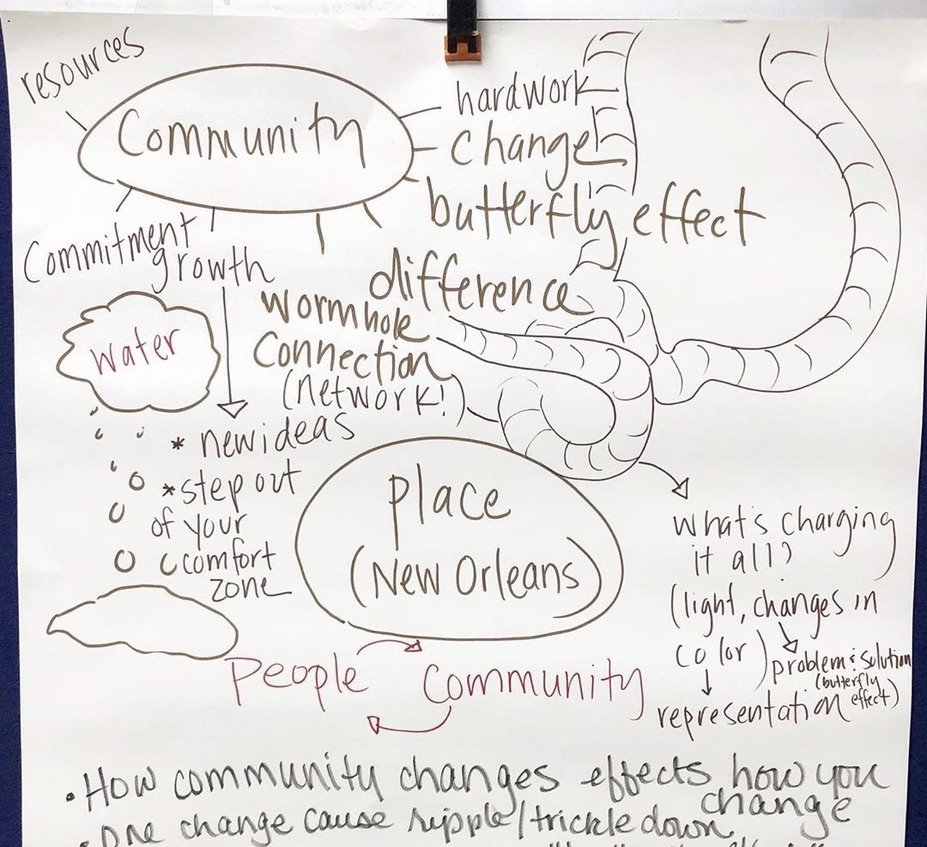 resources
Community
hardwork
change
butterfly effect
difference
Commitment
growth
wormhole
Connection
(network!)
water
* new ideas
* step out
of your
comfort
zone
place
(New Orleans)
What's charging
it all?
(light, changes in
color)
problem & solution
(butterfly
effect)
representation
People
Community
• How community changes effects how you
change
• One change cause ripple/trickle down